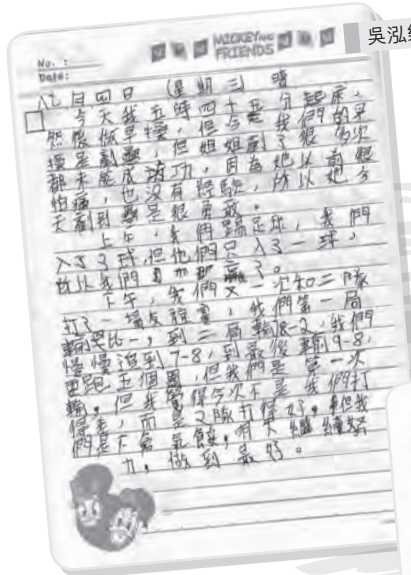 吳泓
No. :
MICKEY AND FRIENDS
Date:
九月四日 (星期三) 晴
今天我五時四十五分起床,
然後做早操,但今天我們的早
操是劃艇,但姐姐劃了很多次
都未能成功,因為她以前很
怕痛,也沒有經驗,所以她今
天劃到艇是很勇敢。
上午,我們踢足球,我們
入了2球,但他們只入了一球,
所以我們 了。
下午,我們又一次和二隊
打了一場友誼賽,我們第一局
輸 比一,到二局輸8-2,我們
慢慢追到7-8,到最後輸9-8,
要跑五個圈,但我們是第一次
輸。但我覺得今次不是我們打
得差,而是2隊打得好。但我
們是不會氣餒,明天繼續努
力,做到最好。